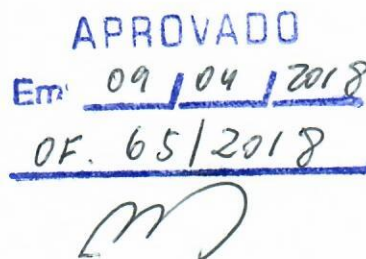 APROVADO
Em: 09 / 04 / 2018
OF. 65/2018